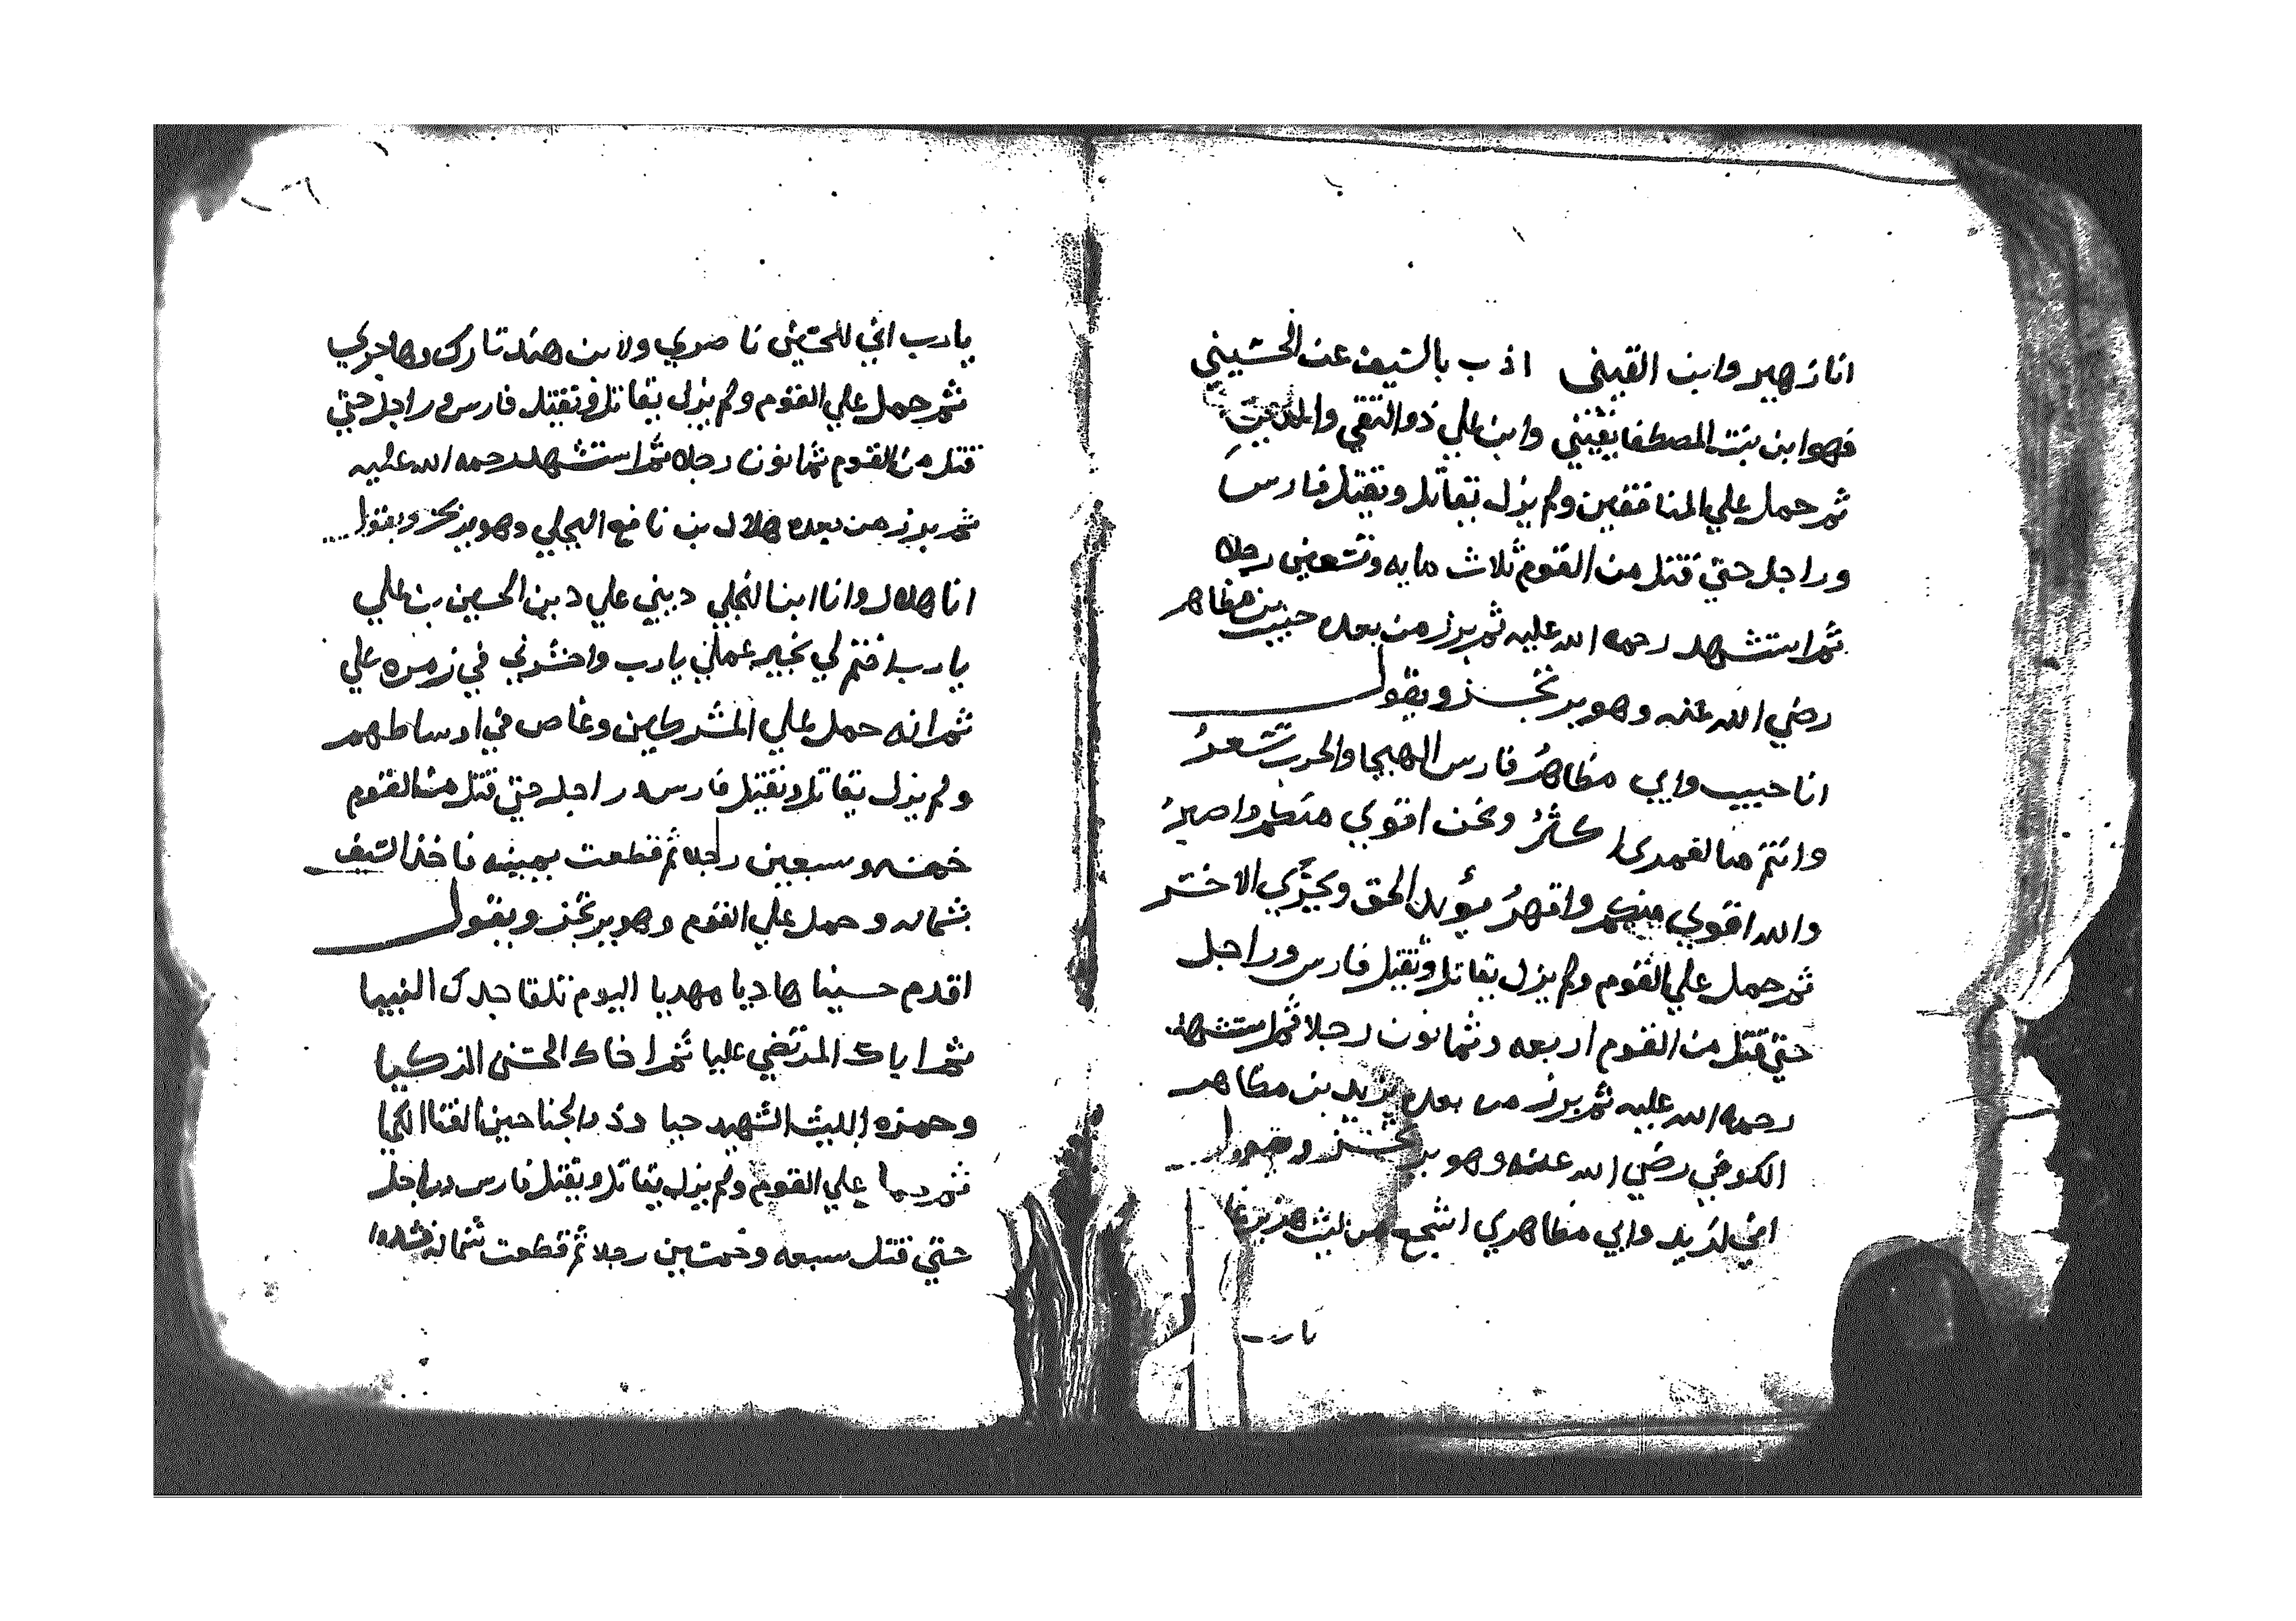 انا زهير وابن القيني اذب بالسيف عن الحسيني
فهو ابن بنت المصطفا يقيني وابن علي ذو التقي والدين
ثم حمل علي المنافقين ولم يزل يقاتل ويقتل فارس
وراجل حتي قتل من القوم ثلاث مايه وتسعين رجلا
ثم استشهد رحمه الله عليه ثم برز من بعده حبيب بن مظاهر
رضي الله عنه وهو يرتجز ويقول
انا حبيب وابي مظاهرُ فارس الهيجا والحرب تسعرُ
وانتم منا لعمري اكثرُ ونحن اقوي منكم واصبرُ
والله اقوي منكم واقهرُ مؤيد الحق ويجزي الاختر
ثم حمل علي القوم ولم يزل يقاتل ويقتل فارس وراجل
حتي قتل من القوم اربعه وثمانون رجلا ثم استشهد
رحمه الله عليه ثم برز من بعده يزيد بن مظاهر
الكوفي رضي الله عنه وهو يرتجز ويقول
اني ليزيد وابي مظاهري اشجع من ليث هزبر
يارب
يارب اني للحسين ناصري ولابن هند تارك وهاجري
ثم حمل علي القوم ولم يزل يقاتل ويقتل فارس وراجل حتي
قتل من القوم ثمانون رجلا ثم استشهد رحمه الله عليه
ثم برز من بعده هلال بن نافع البجلي وهو يرتجز ويقول
انا هلال وانا ابن البجلي ديني علي دين الحسين بن علي
يارب اختم لي بخير عملي يارب واحشرني في زمره علي
ثم انه حمل علي المشركين وغاص في اوساطهم
ولم يزل يقاتل ويقتل فارس وراجل حتي قتل من القوم
خمسه وسبعين رجلا ثم قطعت يمينه فاخذ السيف
بشماله وحمل علي القوم وهو يرتجز ويقول
اقدم حسينا هاديا مهديا اليوم تلقا جدك النبيا
ثم اباك المرتضي عليا ثم اخاك الحسن الزكيا
وحمزه الليث الشهيد حيا وذو الجناحين الفتا الكميا
ثم حمل علي القوم ولم يزل يقاتل ويقتل فارس وراجل
حتي قتل سبعه وخمسين رجلا ثم قطعت شماله فشدوا